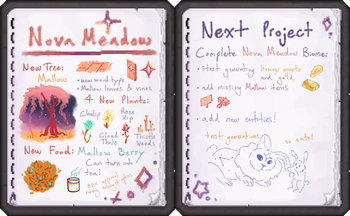 Nova Meadow
New Tree:
Mallow
• new wood type
• Mallow leaves & vines
4 New Plants:
Chuly
Rose
Hip
Cloud
Thistle
Weeds
New Food: Mallow Berry
Can turn into
tea!
Next Project
Complete Nova Meadow Biome:
• start generating honey grants
and gold
• add missing Mallow items
• add new entities!
test generations
so cute!